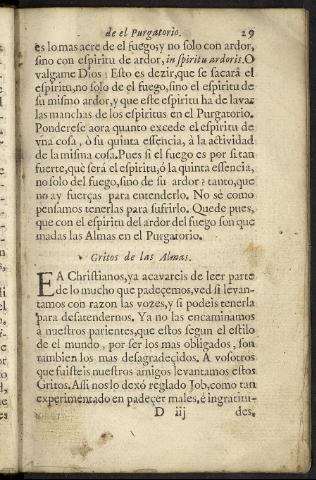 de el Purgatorio. 29
es lo mas acre de el fuego; y no solo con ardor,
sino con espiritu de ardor, in spiritu ardoris. O
valgame Dios! Esto es dezir, que se sacará el
espiritu, no solo de el fuego, sino el espiritu de
su mismo ardor, y que este espiritu ha de lavar
las manchas de los espiritus en el Purgatorio.
Ponderese aora quanto excede el espiritu de
vna cosa, ò su quinta essencia, à la actividad
de la misma cosa. Pues si el fuego es por si tan
fuerte, què serà el espiritu, ò la quinta essencia,
no solo del fuego, sino de su ardor? tanto, que
no ay fuerças para entenderlo. No sè como
pensamos tenerlas para sufrirlo. Quede pues,
que con el espiritu del ardor del fuego son que
madas las Almas en el Purgatorio.
Gritos de las Almas.
EA Christianos, ya acavareis de leer parte
de lo mucho que padeçemos, ved si levan-
tamos con razon las vozes, y si podeis tenerla
para desatendernos. Ya no las encaminamos
à nuestros parientes, que estos segun el estilo
de el mundo, por ser los mas obligados, son
tambien los mas desagradeçidos. A vosotros
que fuisteis nuestros amigos levantamos estos
Gritos. Assi nos lo dexó reglado Job, como tan
experimentado en padeçer males, è ingratitu-
D iij des,